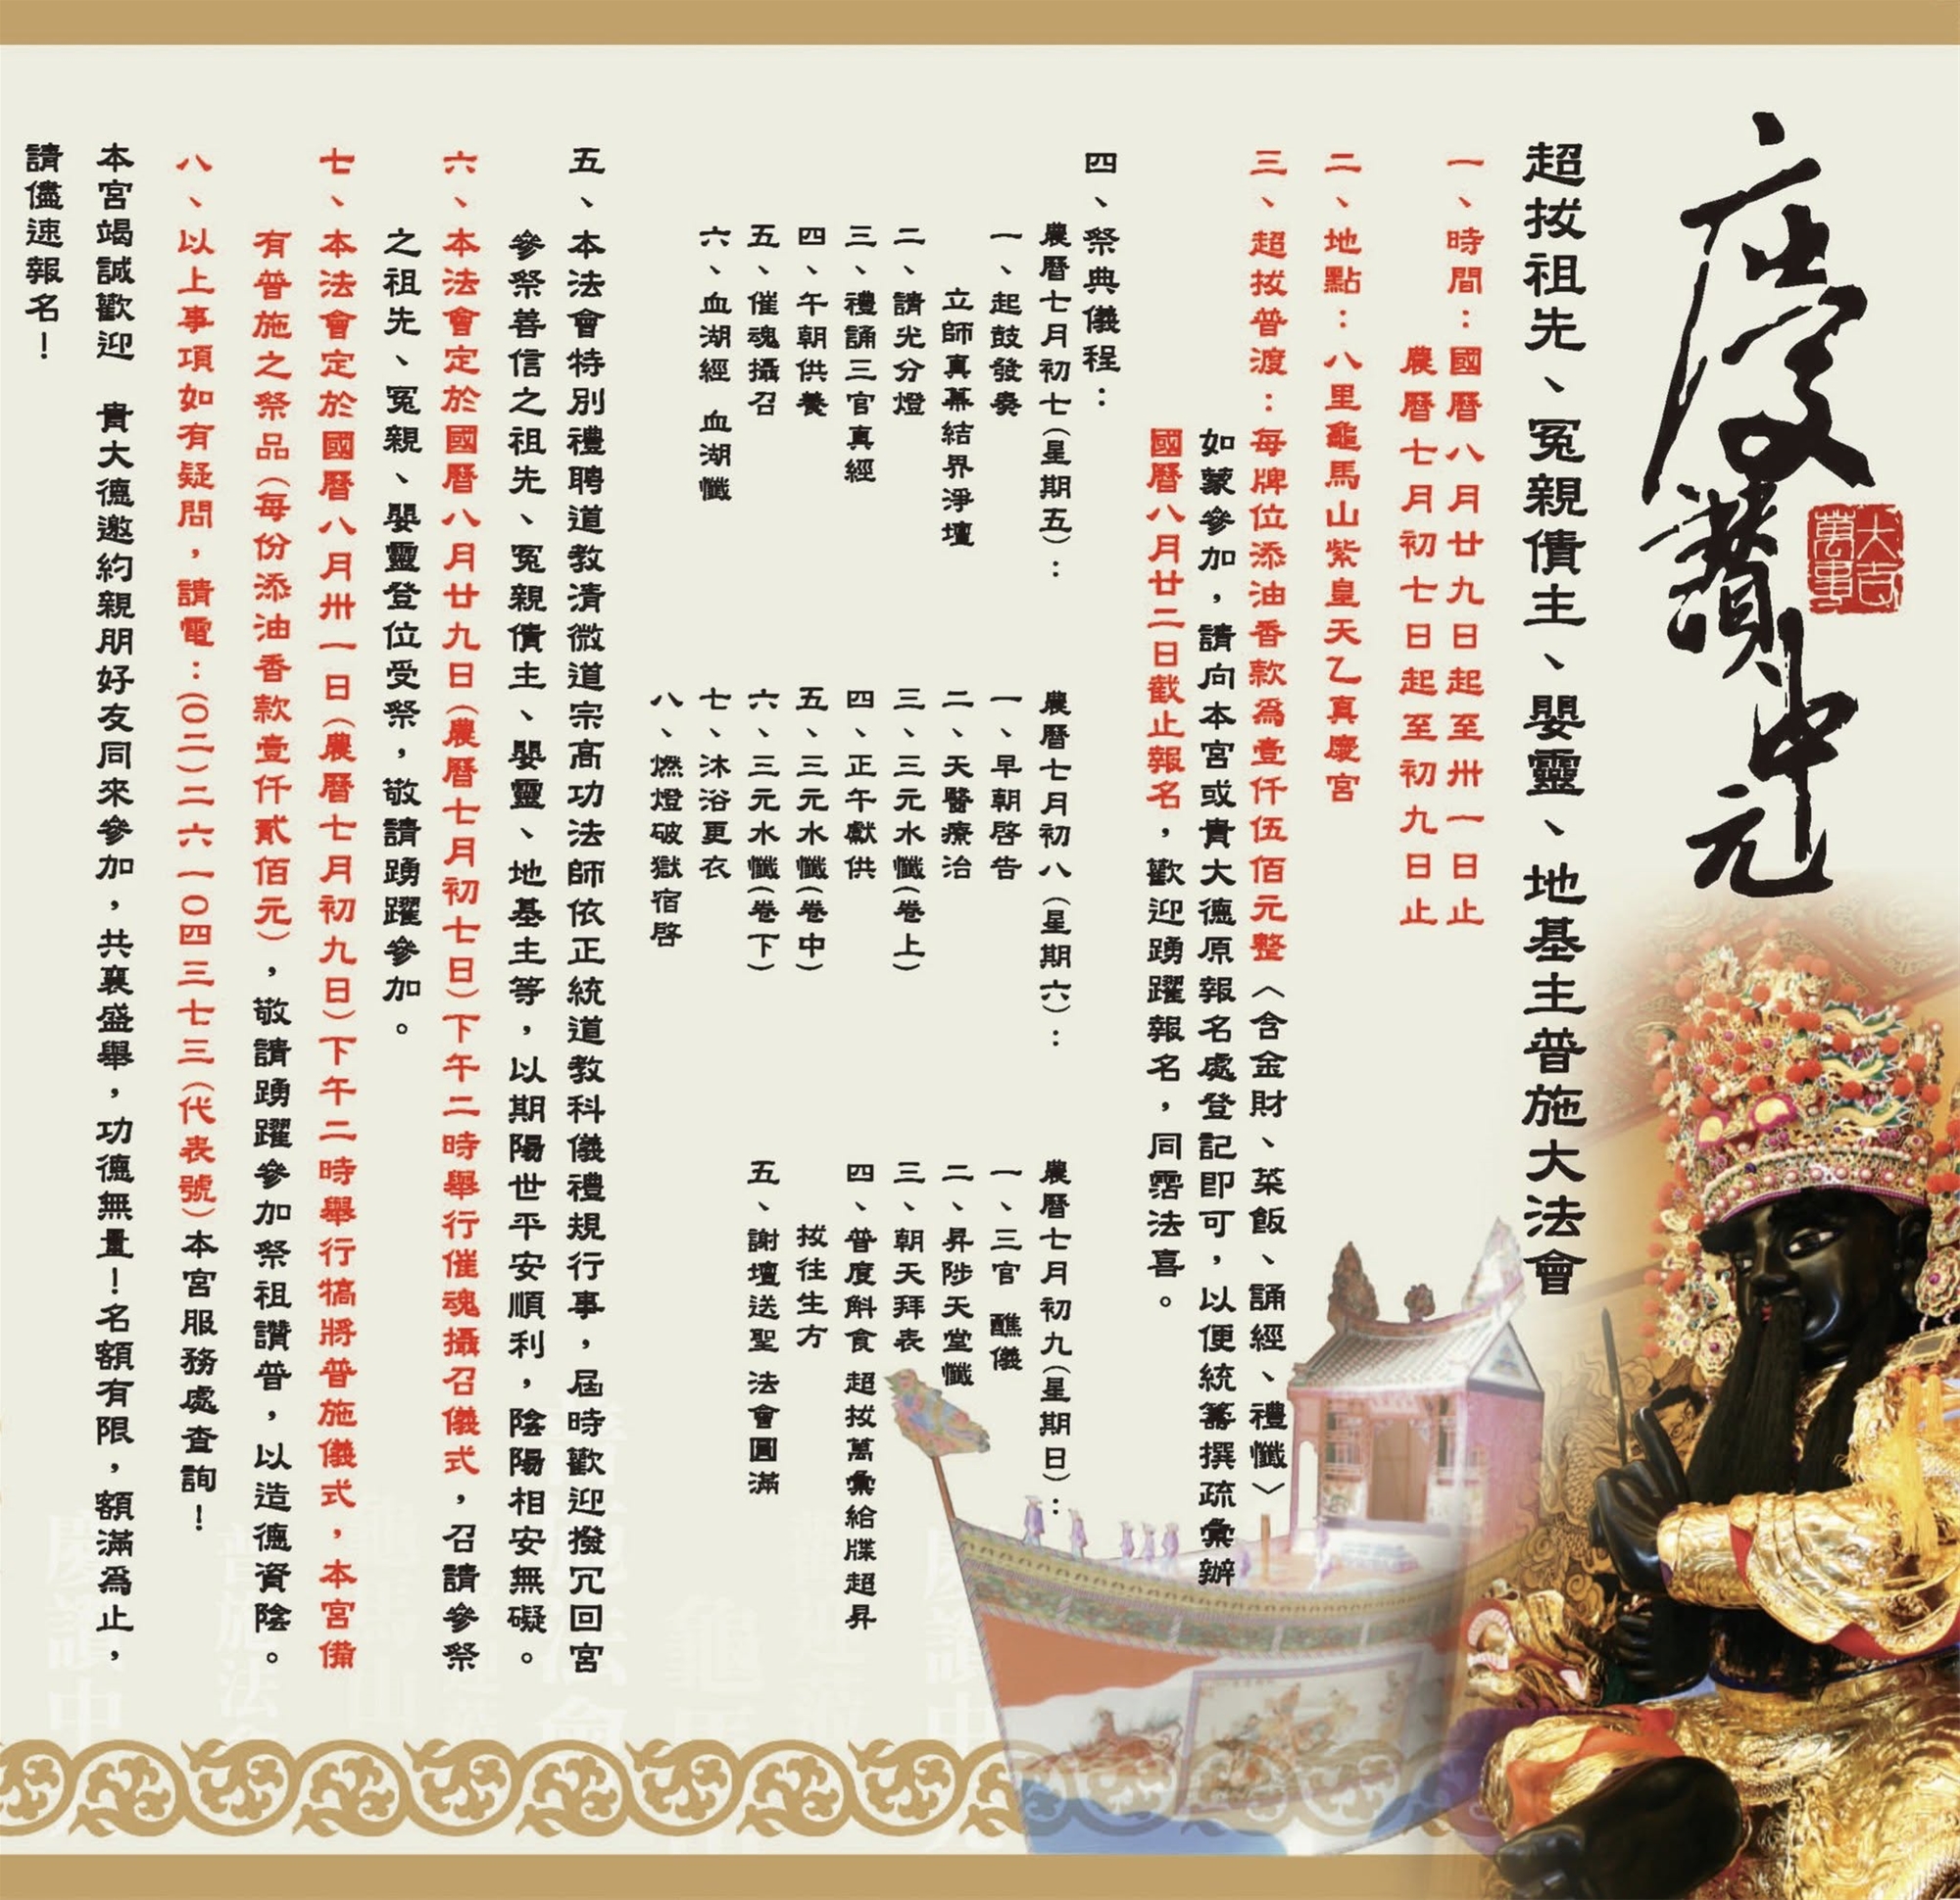 慶讚中元
大吉
萬事
超拔祖先、冤親債主、嬰靈、地基主普施大法會
一、時間：國曆八月廿九日起至卅一日止
農曆七月初七日起至初九日止
二、地點：八里龜馬山紫皇天乙真慶宮
三、超拔普渡：每牌位添油香款為壹仟伍佰元整〈含金財、菜飯、誦經、禮懺〉
如蒙參加，請向本宮或貴大德原報名處登記即可，以便統籌撰疏彙辦
國曆八月廿二日截止報名，歡迎踴躍報名，同霑法喜。
四、祭典儀程：
農曆七月初七(星期五)：
一、起鼓發奏
立師真幕結界淨壇
二、請光分燈
三、禮誦三官真經
四、午朝供養
五、催魂攝召
六、血湖經 血湖懺
農曆七月初八(星期六)：
一、早朝啓告
二、天醫療治
三、三元水懺(卷上)
四、正午獻供
五、三元水懺(卷中)
六、三元水懺(卷下)
七、沐浴更衣
八、燃燈破獄宿啓
農曆七月初九(星期日)：
一、三官 醮儀
二、昇陟天堂懺
三、朝天拜表
四、普度斛食 超拔萬彙給牒超昇
拔往生方
五、謝壇送聖 法會圓滿
五、本法會特別禮聘道教清微道宗高功法師依正統道教科儀禮規行事，屆時歡迎撥冗回宮
參祭善信之祖先、冤親債主、嬰靈、地基主等，以期陽世平安順利，陰陽相安無礙。
六、本法會定於國曆八月廿九日(農曆七月初七日)下午二時舉行催魂攝召儀式，召請參祭
之祖先、冤親、嬰靈登位受祭，敬請踴躍參加。
七、本法會定於國曆八月卅一日(農曆七月初九日)下午二時舉行犒將普施儀式，本宮備
有普施之祭品(每份添油香款壹仟貳佰元)，敬請踴躍參加祭祖讚普，以造德資陰。
八、以上事項如有疑問，請電：(〇二)二六一〇四三七三(代表號)本宮服務處查詢！
本宮竭誠歡迎 貴大德邀約親朋好友同來參加，共襄盛舉，功德無量！名額有限，額滿為止，
請儘速報名！